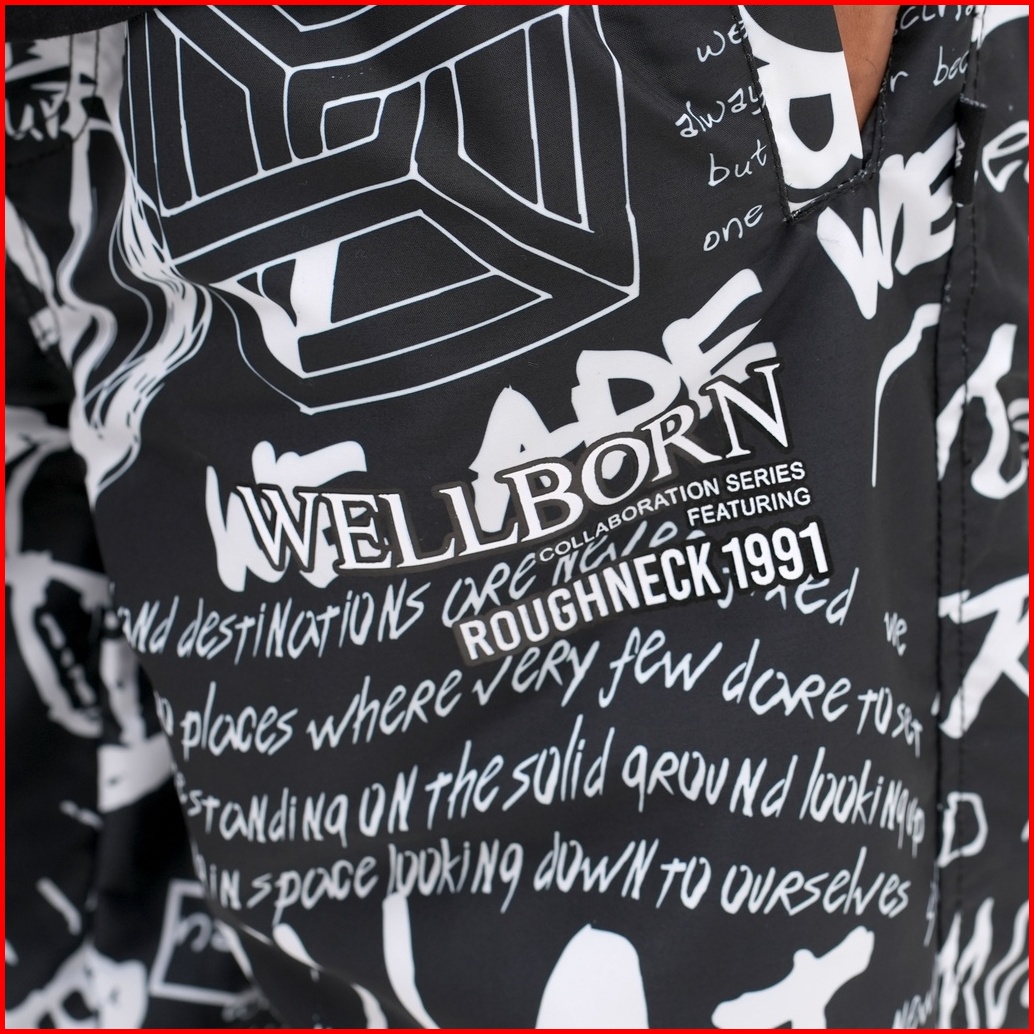 always
but
one
WE
WE ARE
WELLBORN
COLLABORATION SERIES
FEATURING
ROUGHNECK 1991
and destinations are never
we
places where very few dare to set
standing on the solid ground looking up
in space looking down to ourselves